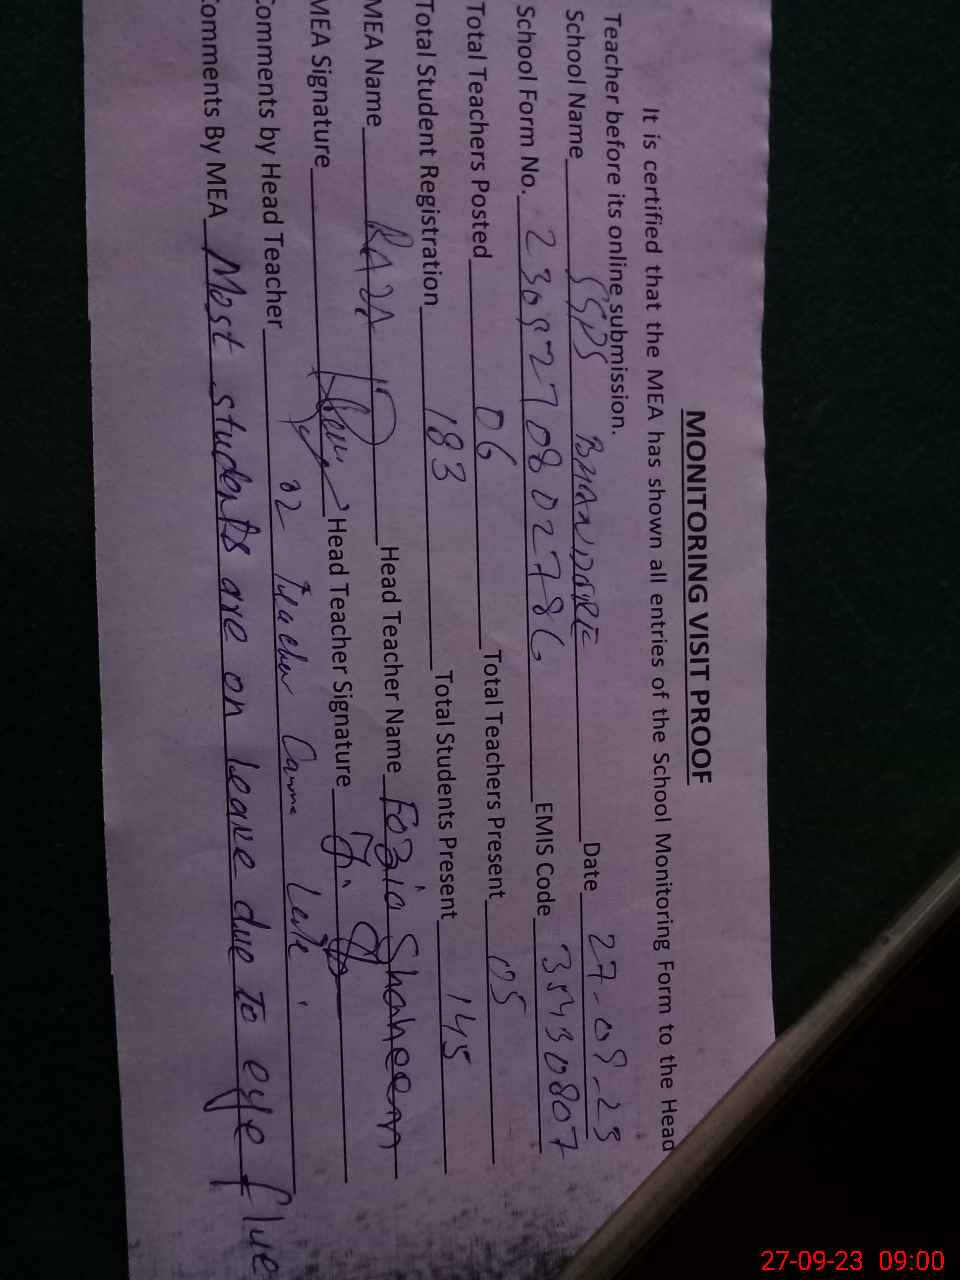 MONITORING VISIT PROOF
It is certified that the MEA has shown all entries of the School Monitoring Form to the Head
Teacher before its online submission.
School Name GGPS BHANDORE Date 27-09-23
School Form No. 2309270802786 EMIS Code 35430807
Total Teachers Posted 06 Total Teachers Present 05
Total Student Registration 183 Total Students Present 145
MEA Name Head Teacher Name Fozia Shaheen
MEA Signature Head Teacher Signature
Comments by Head Teacher 02 teacher Came Late
Comments By MEA Most students are on leave due to eye flue
27-09-23 09:00